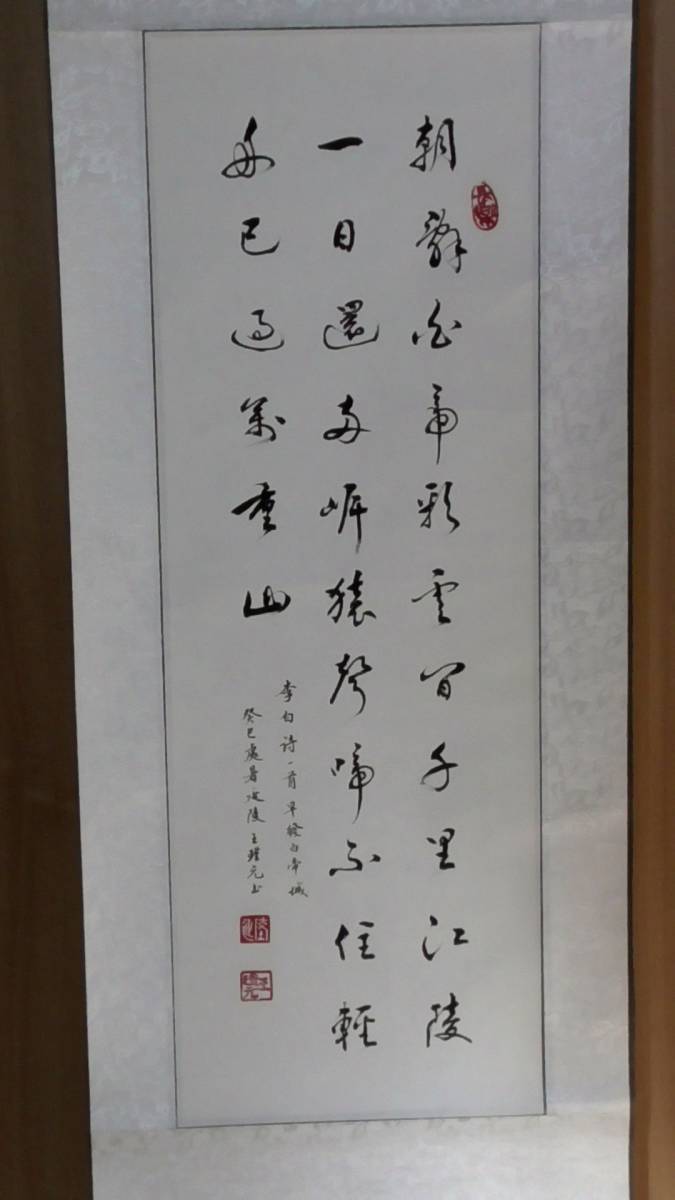 朝辭白帝彩雲間千里江陵
一日還兩岸猿聲啼不住輕
舟已過萬重山
李白诗一首早發白帝城
癸巳處暑 陵王 元书